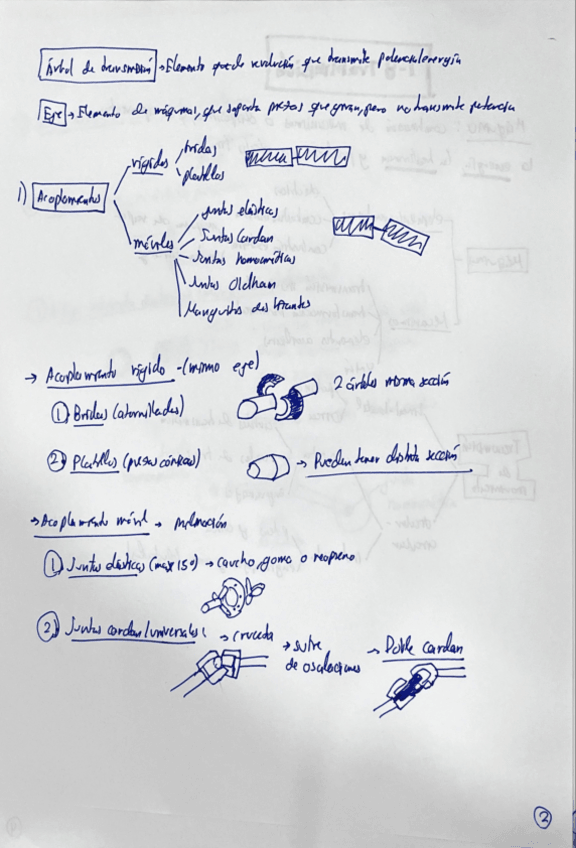 Árbol de transmisión → Elemento que de revolución, que transmite potencia/energía
Eje → Elemento de máquinas, que soporta piezas que giran, pero no transmite potencia
1) Acoplamientos
rígidos
bridas
platillos
móviles
Juntas elásticas
Juntas Cardan
Juntas homocinéticas
Juntas Oldham
Manguitos deslizantes
→ Acoplamiento rígido - (mismo eje)
① Bridas (atornilladas)
2 árboles misma sección
② Platillos (piezas cónicas)
→ Pueden tener distinta sección
→ Acoplamiento móvil →
① Juntas elásticas (max 15º) → caucho, goma o neopreno
② Juntas cardan/universales: → cruceta → sufre → Doble cardan
de oscilaciones
2